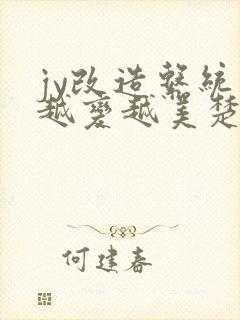 jy改造系統
越變越美楚
何建春